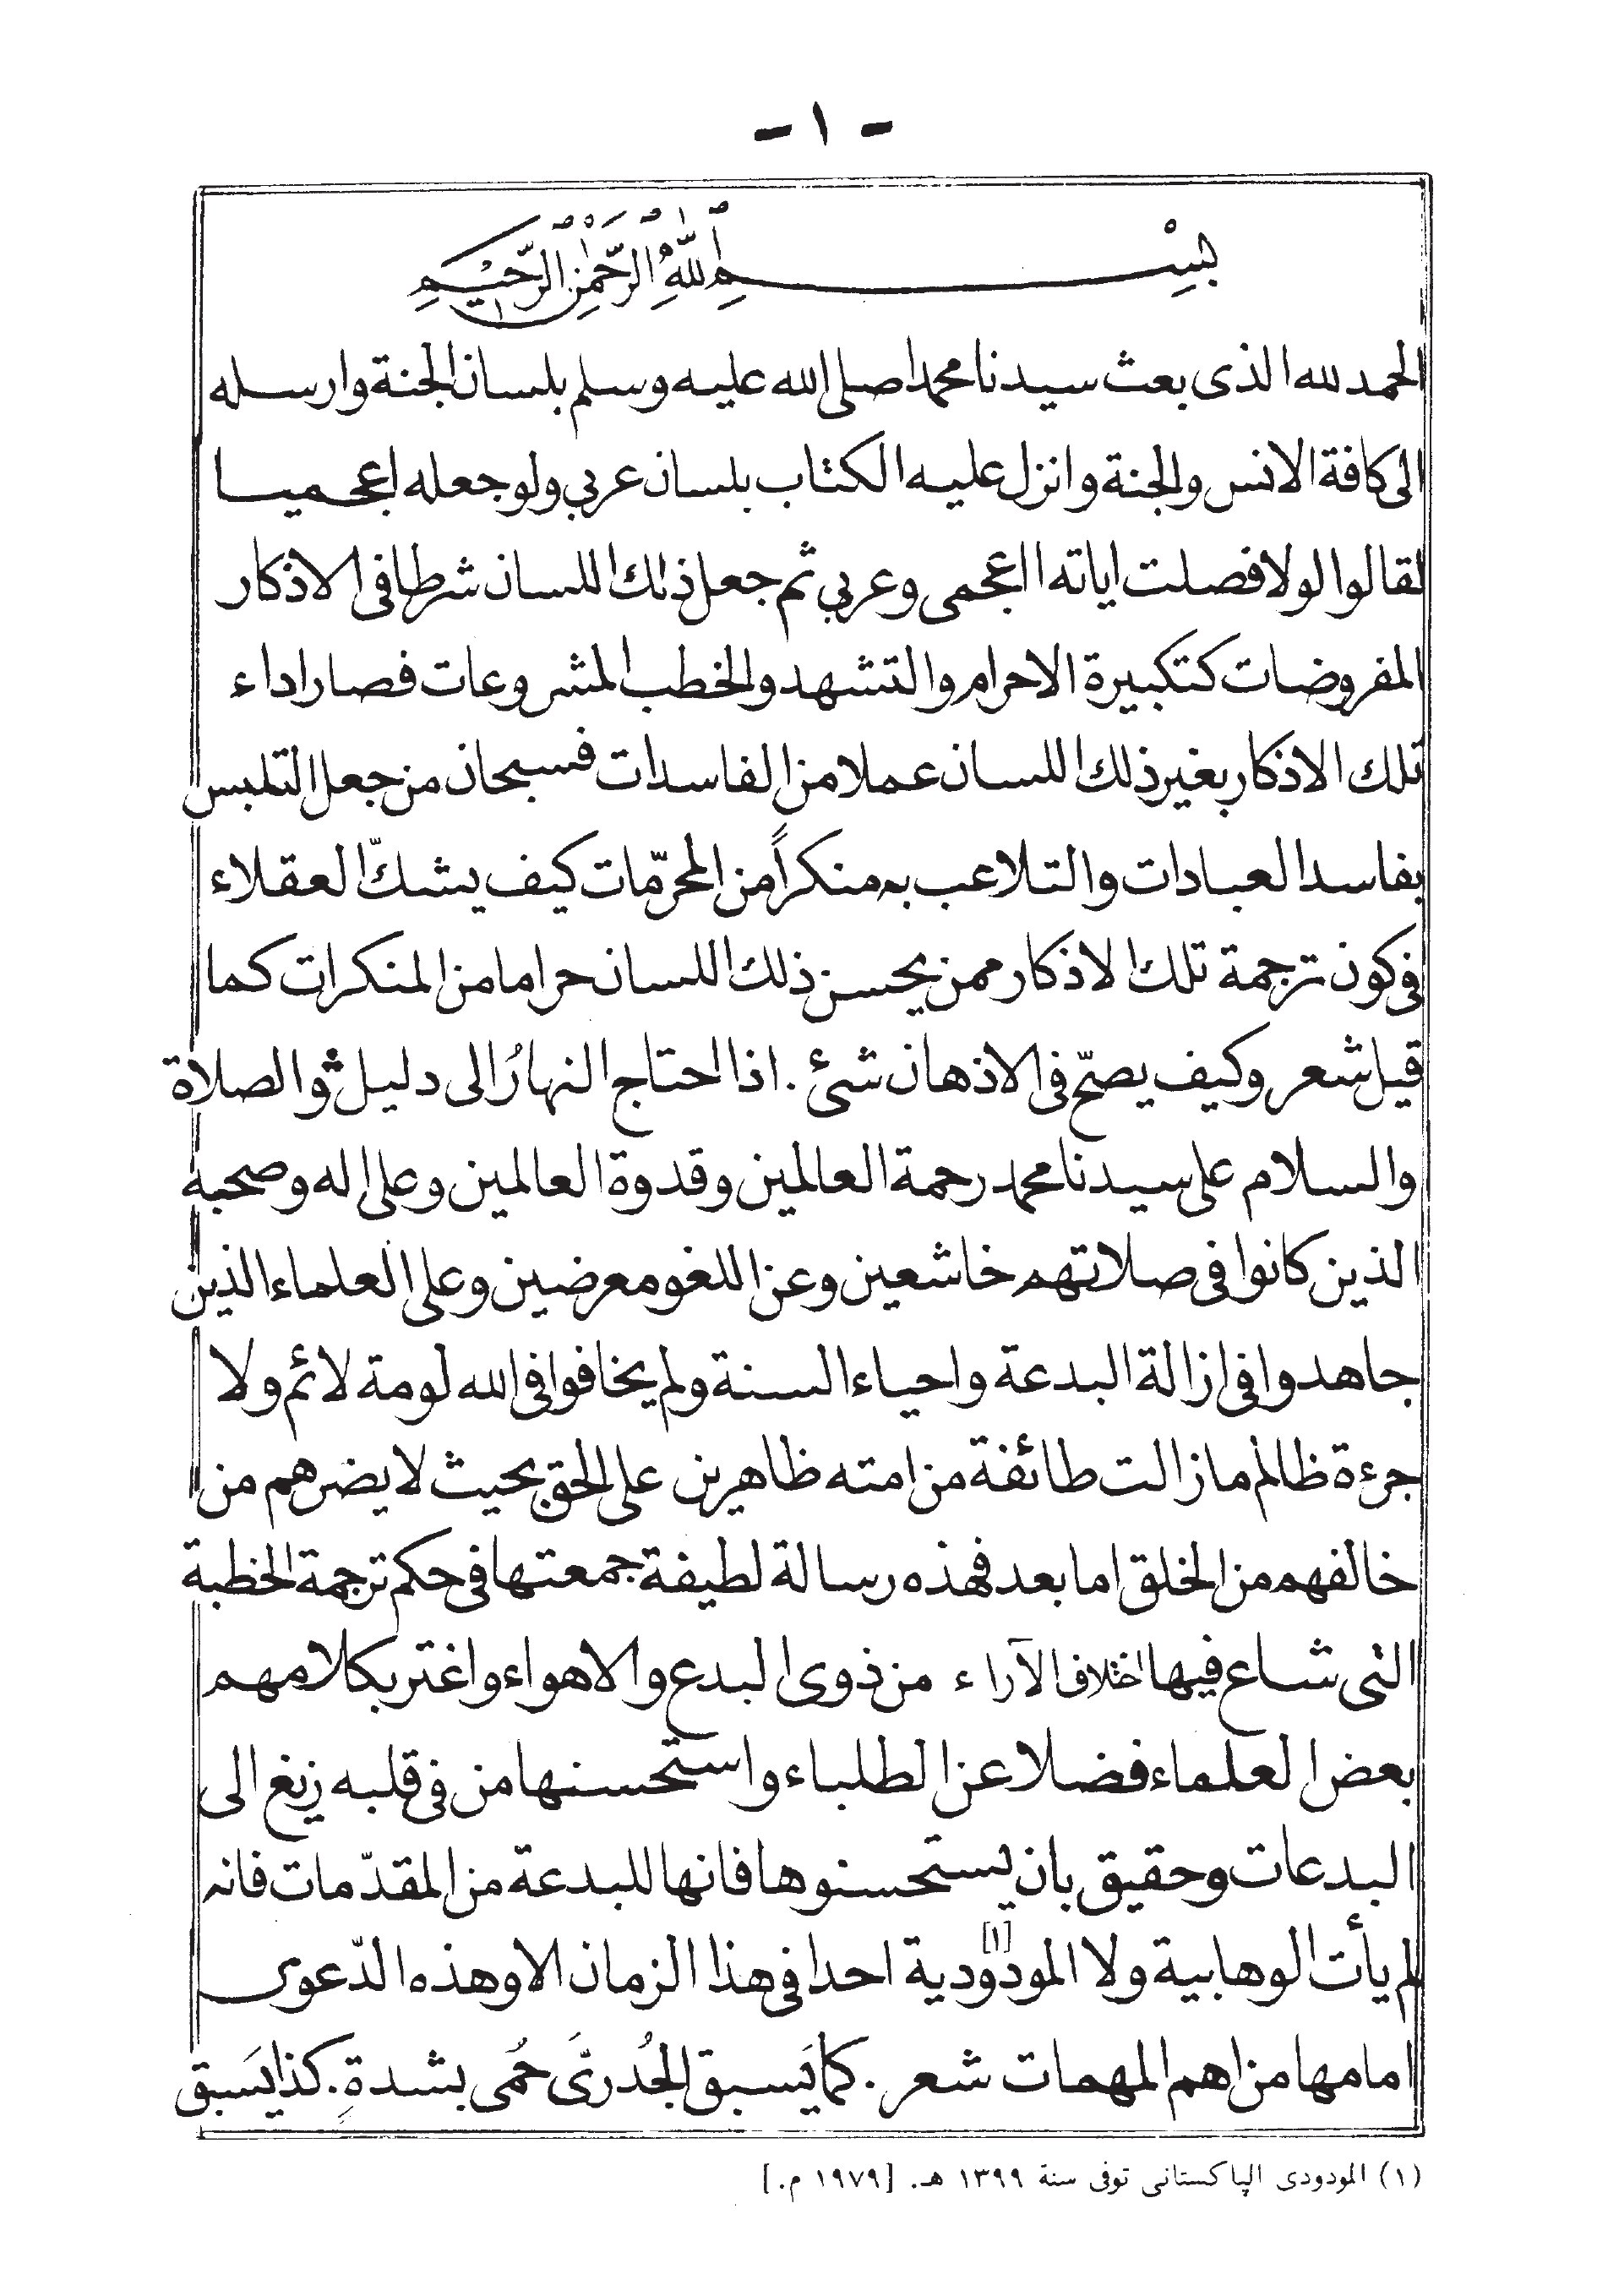 - ١ -
بِسْمِ اللّٰهِ الرَّحْمٰنِ الرَّحِيْمِ
الحمد لله الذى بعث سيدنا محمدا صلى الله عليه وسلم بلسان الجنة وارسله
الى كافة الانس والجنة وانزل عليه الكتاب بلسان عربي ولو جعله اعجميا
لقالوا لولا فصلت اياته ااعجمى وعربي ثم جعل ذلك اللسان شرطا فى الاذكار
المفروضات كتكبيرة الاحرام والتشهد والخطب المشروعات فصار اداء
تلك الاذكار بغير ذلك اللسان عملا من الفاسدات فسبحان من جعل التلبس
بفاسد العبادات والتلاعب به منكراً من المحرّمات كيف يشكّ العقلاء
فى كون ترجمة تلك الاذكار ممن يحسن ذلك اللسان حراما من المنكرات كما
قيل شعر وكيف يصحّ فى الاذهان شئ . اذا احتاج النهارُ الى دليل ثم والصلاة
والسلام على سيدنا محمد رحمة العالمين وقدوة العالمين وعلى اله وصحبه
الذين كانوا فى صلاتهم خاشعين وعن اللغو معرضين وعلى العلماء الذين
جاهدوا فى ازالة البدعة واحياء السنة ولم يخافوا فى الله لومة لائم ولا
جرءة ظالم ما زالت طائفة من امته ظاهرين على الحق بحيث لا يضرهم من
خالفهم من الخلق اما بعد فهذه رسالة لطيفة جمعتها فى حكم ترجمة الخطبة
التى شاع فيها اختلاف الآراء من ذوى البدع والاهواء واغتر بكلامهم
بعض العلماء فضلا عن الطلباء واستحسنها من فى قلبه زيغ الى
البدعات وحقيق بان يستحسنوها فانها للبدعة من المقدّمات فانه
لم يأت الوهابية ولا المودودية [١] احدا فى هذا الزمان الا وهذه الدّعوى
امامها من اهم المهمات شعر . كما يَسبق الجُدرىَّ حُمى بشدةٍ . كذا يَسبق
(١) المودودى الپاكستانى توفى سنة ١٣٩٩ هـ. [١٩٧٩ م.]